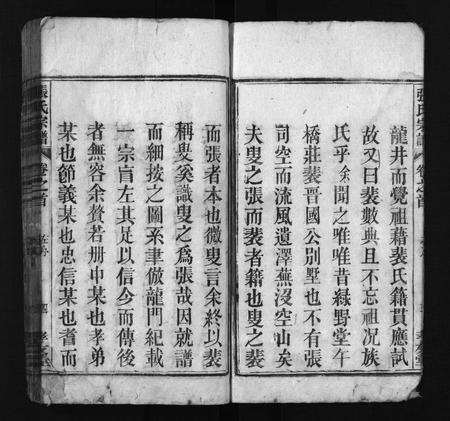 張氏宗譜
卷之首
龍井而覺祖藉裴氏籍貫應試
故又曰裴數典且不忘祖况族
氏乎余聞之唯唯昔緑野堂午
橋莊裴晉國公別墅也不有張
司空而流風遺澤蕪沒空山矣
夫叟之張而裴者籍也叟之裴
而張者本也微叟言余終以裴
稱叟矣識叟之爲張哉因就譜
而細按之圖系聿倣龍門紀載
一宗盲左其足以信今而傳後
者無容余贅若册中某也孝弟
某也節義某也忠信某也耆而
張氏宗譜
卷之首
四